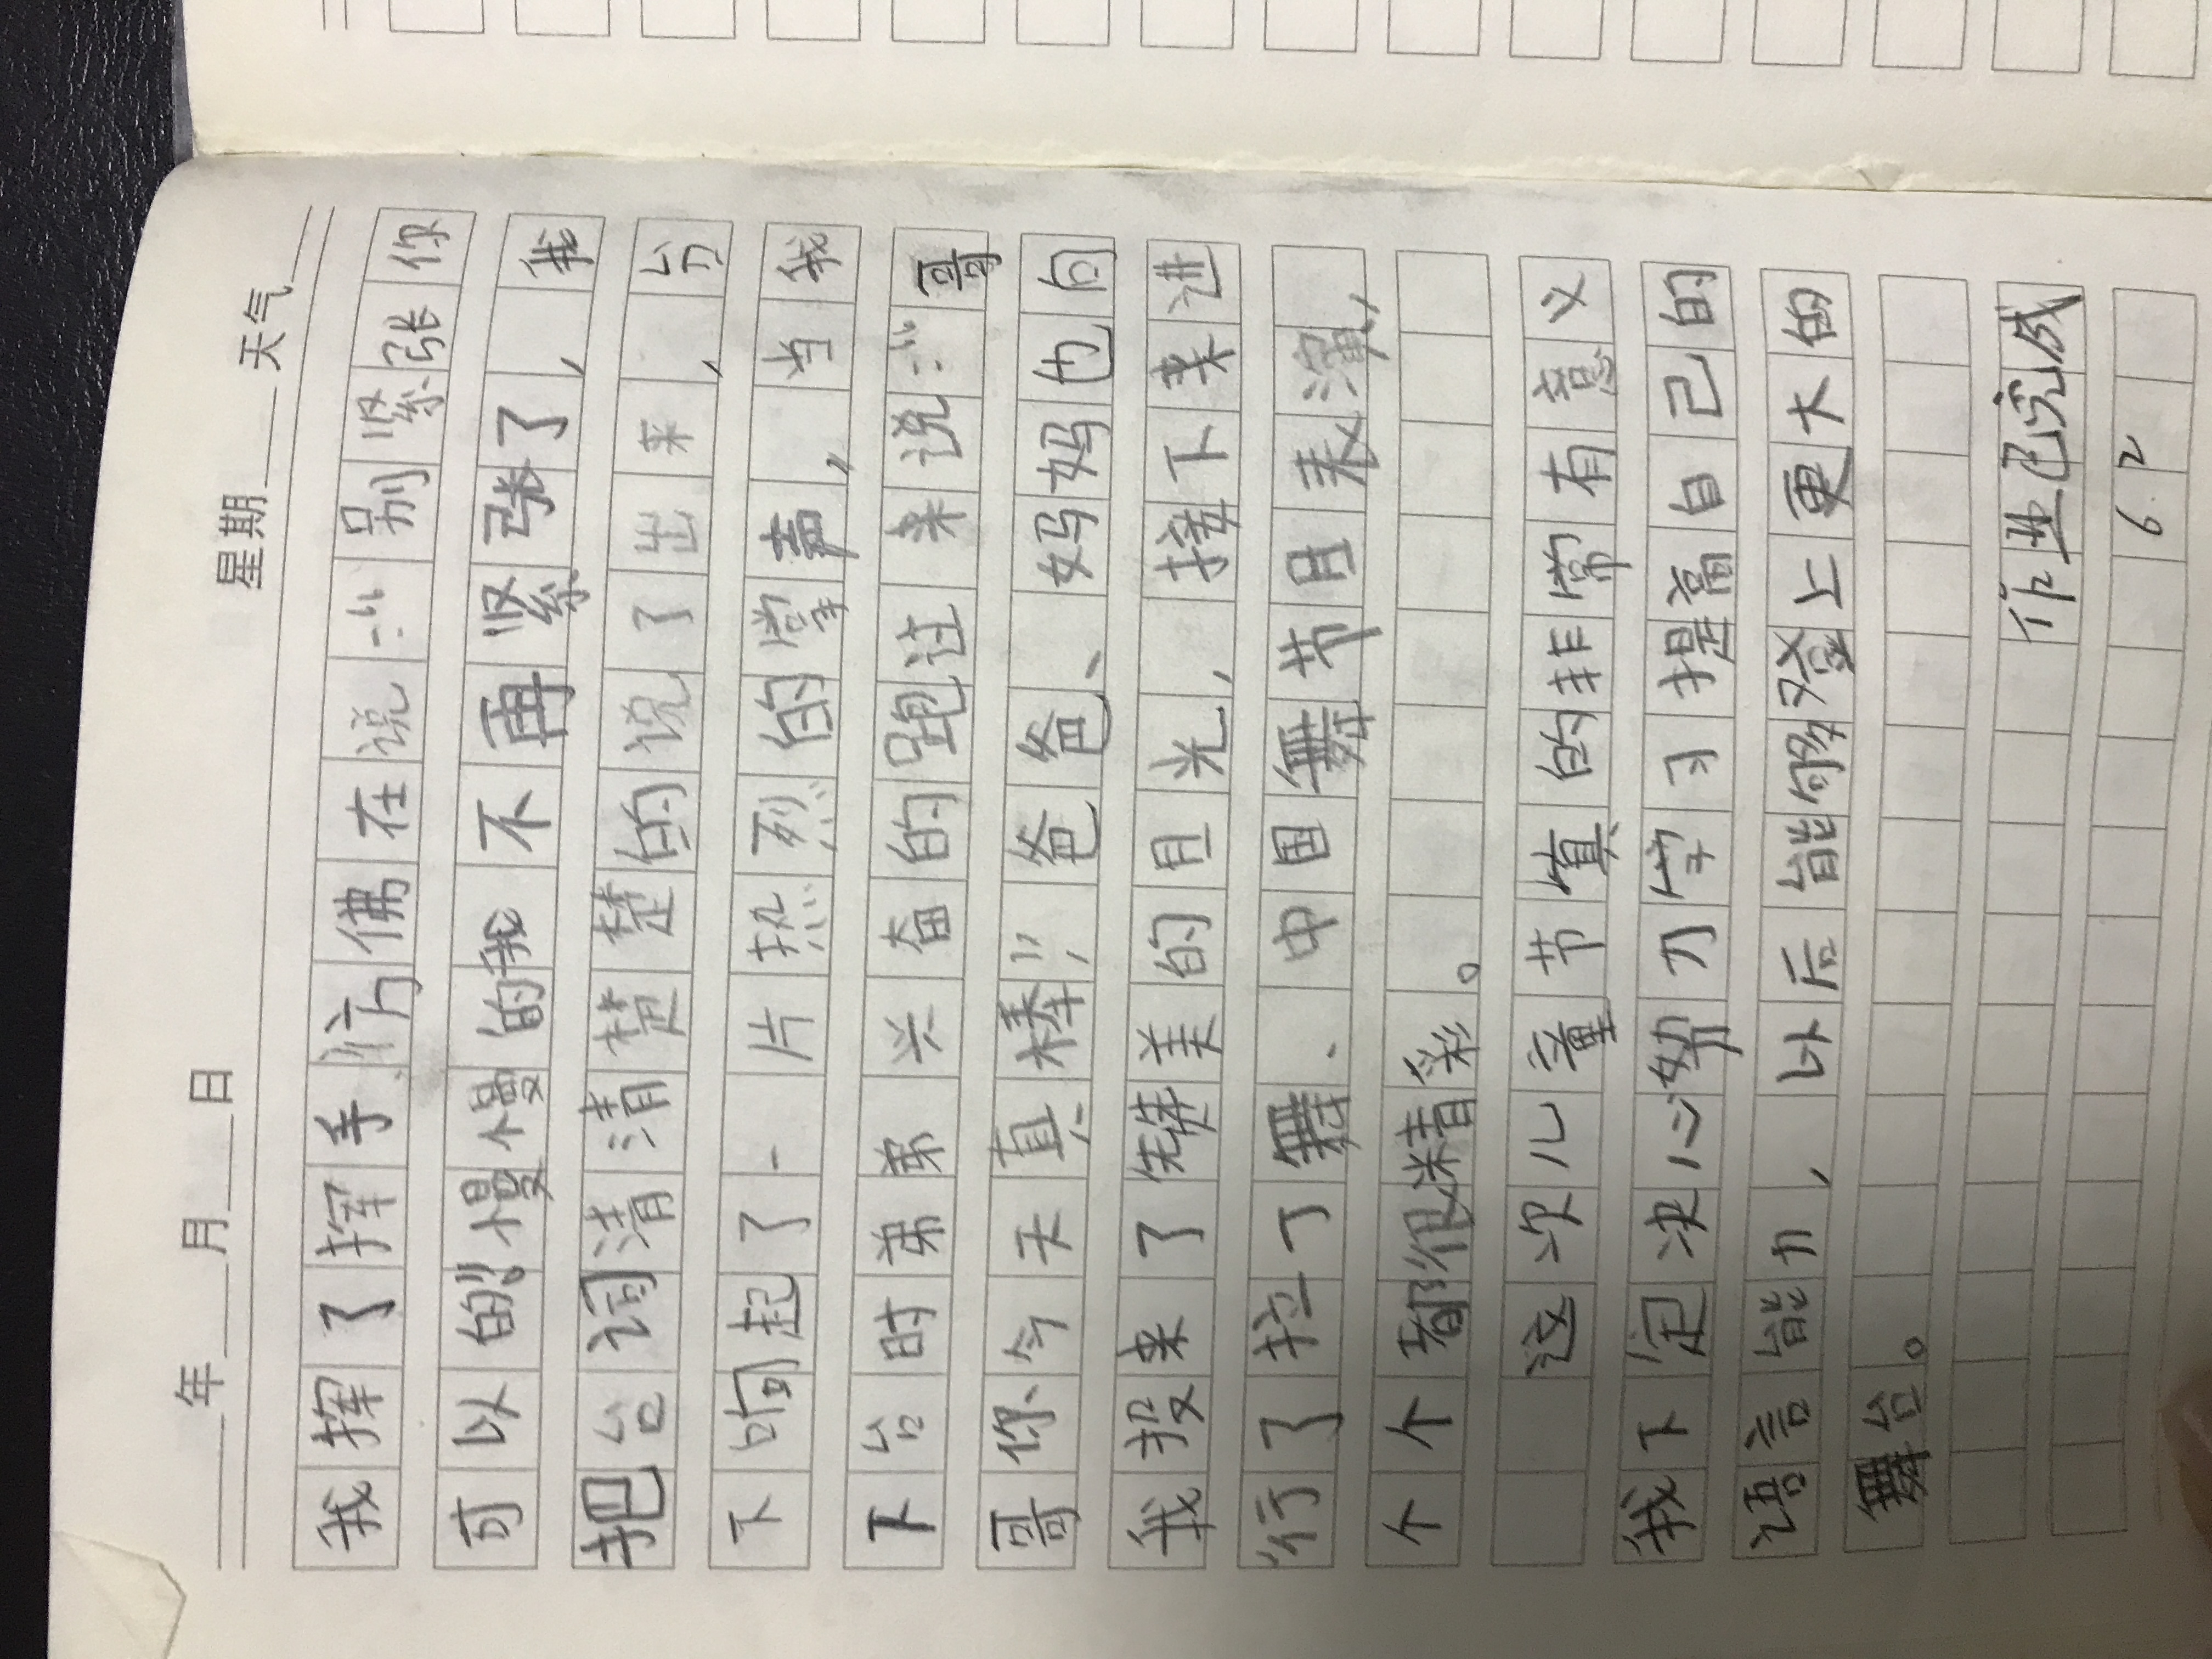 年 月 日 星期 天气
我挥了挥手仿佛在说:“别紧张你
可以的!”慢慢的我不再紧张了,我
把台词清清楚楚的说了出来,台
下响起了一片热烈的掌声,当我
下台时弟弟兴奋的跑过来说:“哥
哥你今天真棒!”爸爸、妈妈也向
我投来了赞美的目光,接下来进
行了拉丁舞、中国舞节目表演,
个个都很精彩。
这次儿童节真的非常有意义
我下定决心努力学习提高自己的
语言能力,以后能够登上更大的
舞台。
作业已完成
6.2